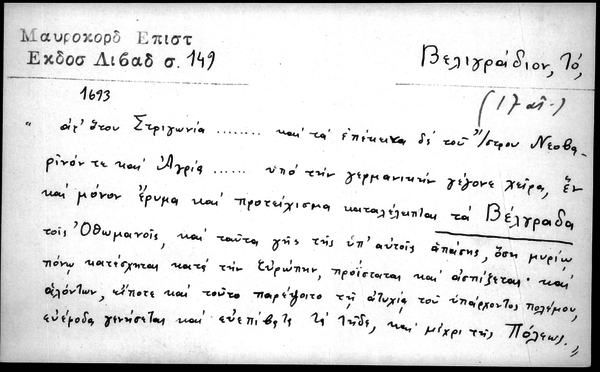 Μαυροκορδ Επιστ
Εκδοσ Λιβαδ σ. 149
Βελιγράδιον, Τό,
1693
(17 αἰ.)
"ἀφ' ὅτου Στριγωνία ........ καὶ τὰ ἐπέκεινα δὲ τοῦ Ἴστρου Νεοβα-
ρῖνόν τε καὶ Ἀγρία ...... ὑπὸ τὴν γερμανικὴν γέγονε χεῖρα, ἓν
καὶ μόνον ἔρυμα καὶ προτείχισμα καταλέλειπται τὰ Βέλγραδα
τοῖς Ὀθωμανοῖς, καὶ ταῦτα γῆς τῆς ὑπ' αὐτοῖς ἁπάσης, ὅση μυρίῳ
πόνῳ κατέσχηται κατὰ τὴν Εὐρώπην, προΐσταται καὶ ἀσπίζεται· καὶ
ἁλόντων, εἴποτε καὶ τοῦτο παρέψοιτο τῇ ἀτυχίᾳ τοῦ ὑπάρχοντος πολέμου,
εὐέφοδα γενήσεται καὶ εὐεπίβατα τὰ τῇδε, καὶ μέχρι τῆς Πόλεως."